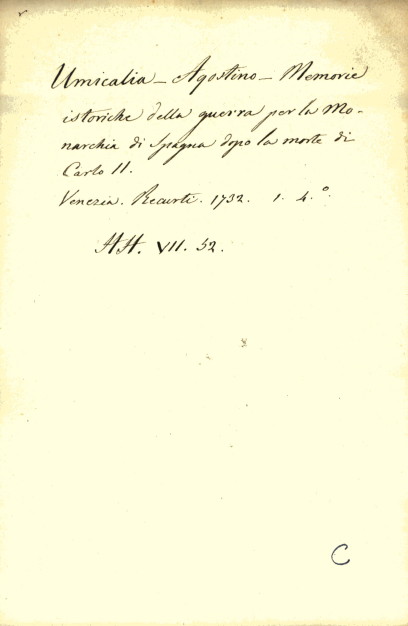 Umicalia - Agostino - Memorie
istoriche della guerra per la Mo-
narchia di Spagna dopo la morte di
Carlo II.
Venezia. Recurti. 1732. 1. 4.°
HH. VII. 52.
C